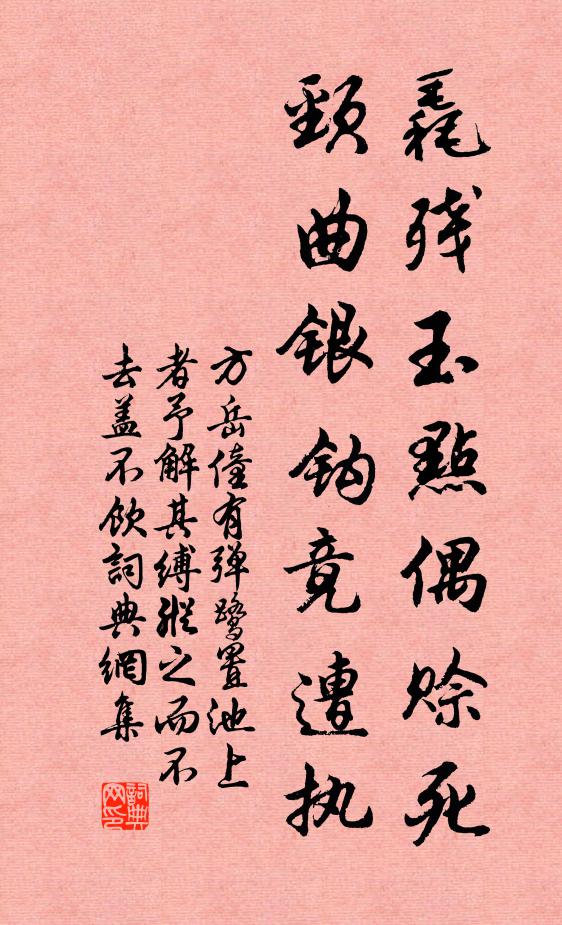 毳残玉點偶赊死
頸曲银钩竟遭执
方岳僮有弹鹭置池上
者予解其缚縱之而不
去盖不飲詞典網集
詞典网印